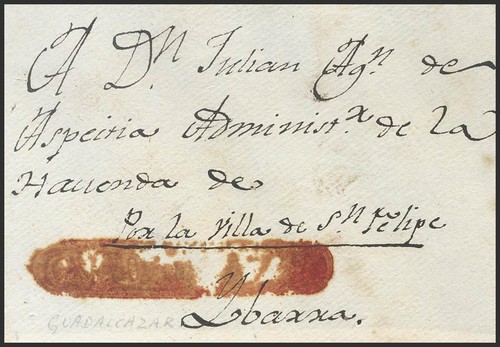 A Dn. Julian Agn. de
Aspeitia Administx. de la
Hacienda de
Por la Villa de Sn. Felipe
Ybarra.
GUADALCAZAR